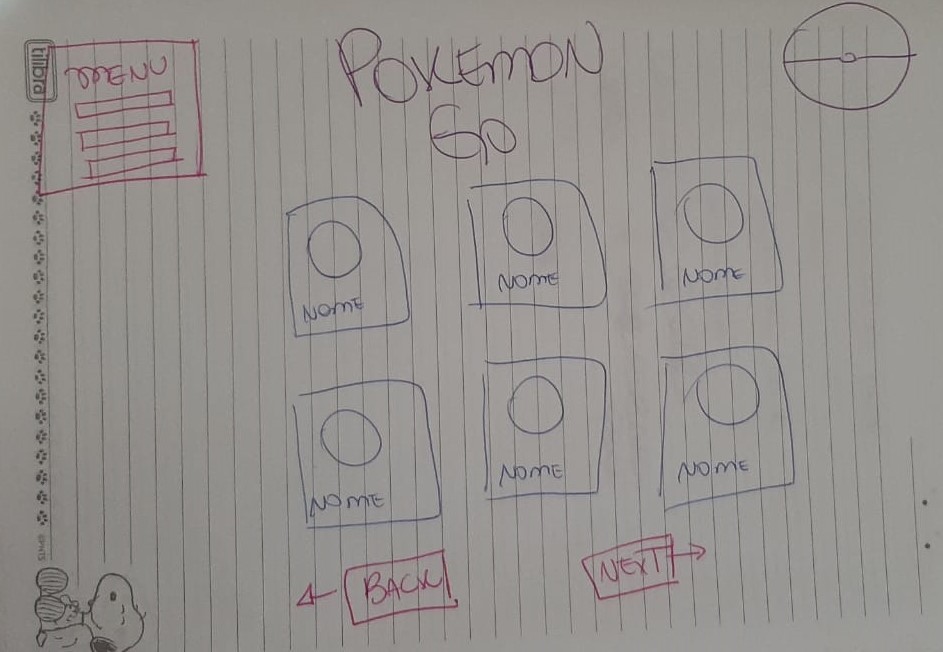 tilibra
MENU
POKEMON
GO
NOME
NOME
NOME
NOME
NOME
NOME
BACK
NEXT